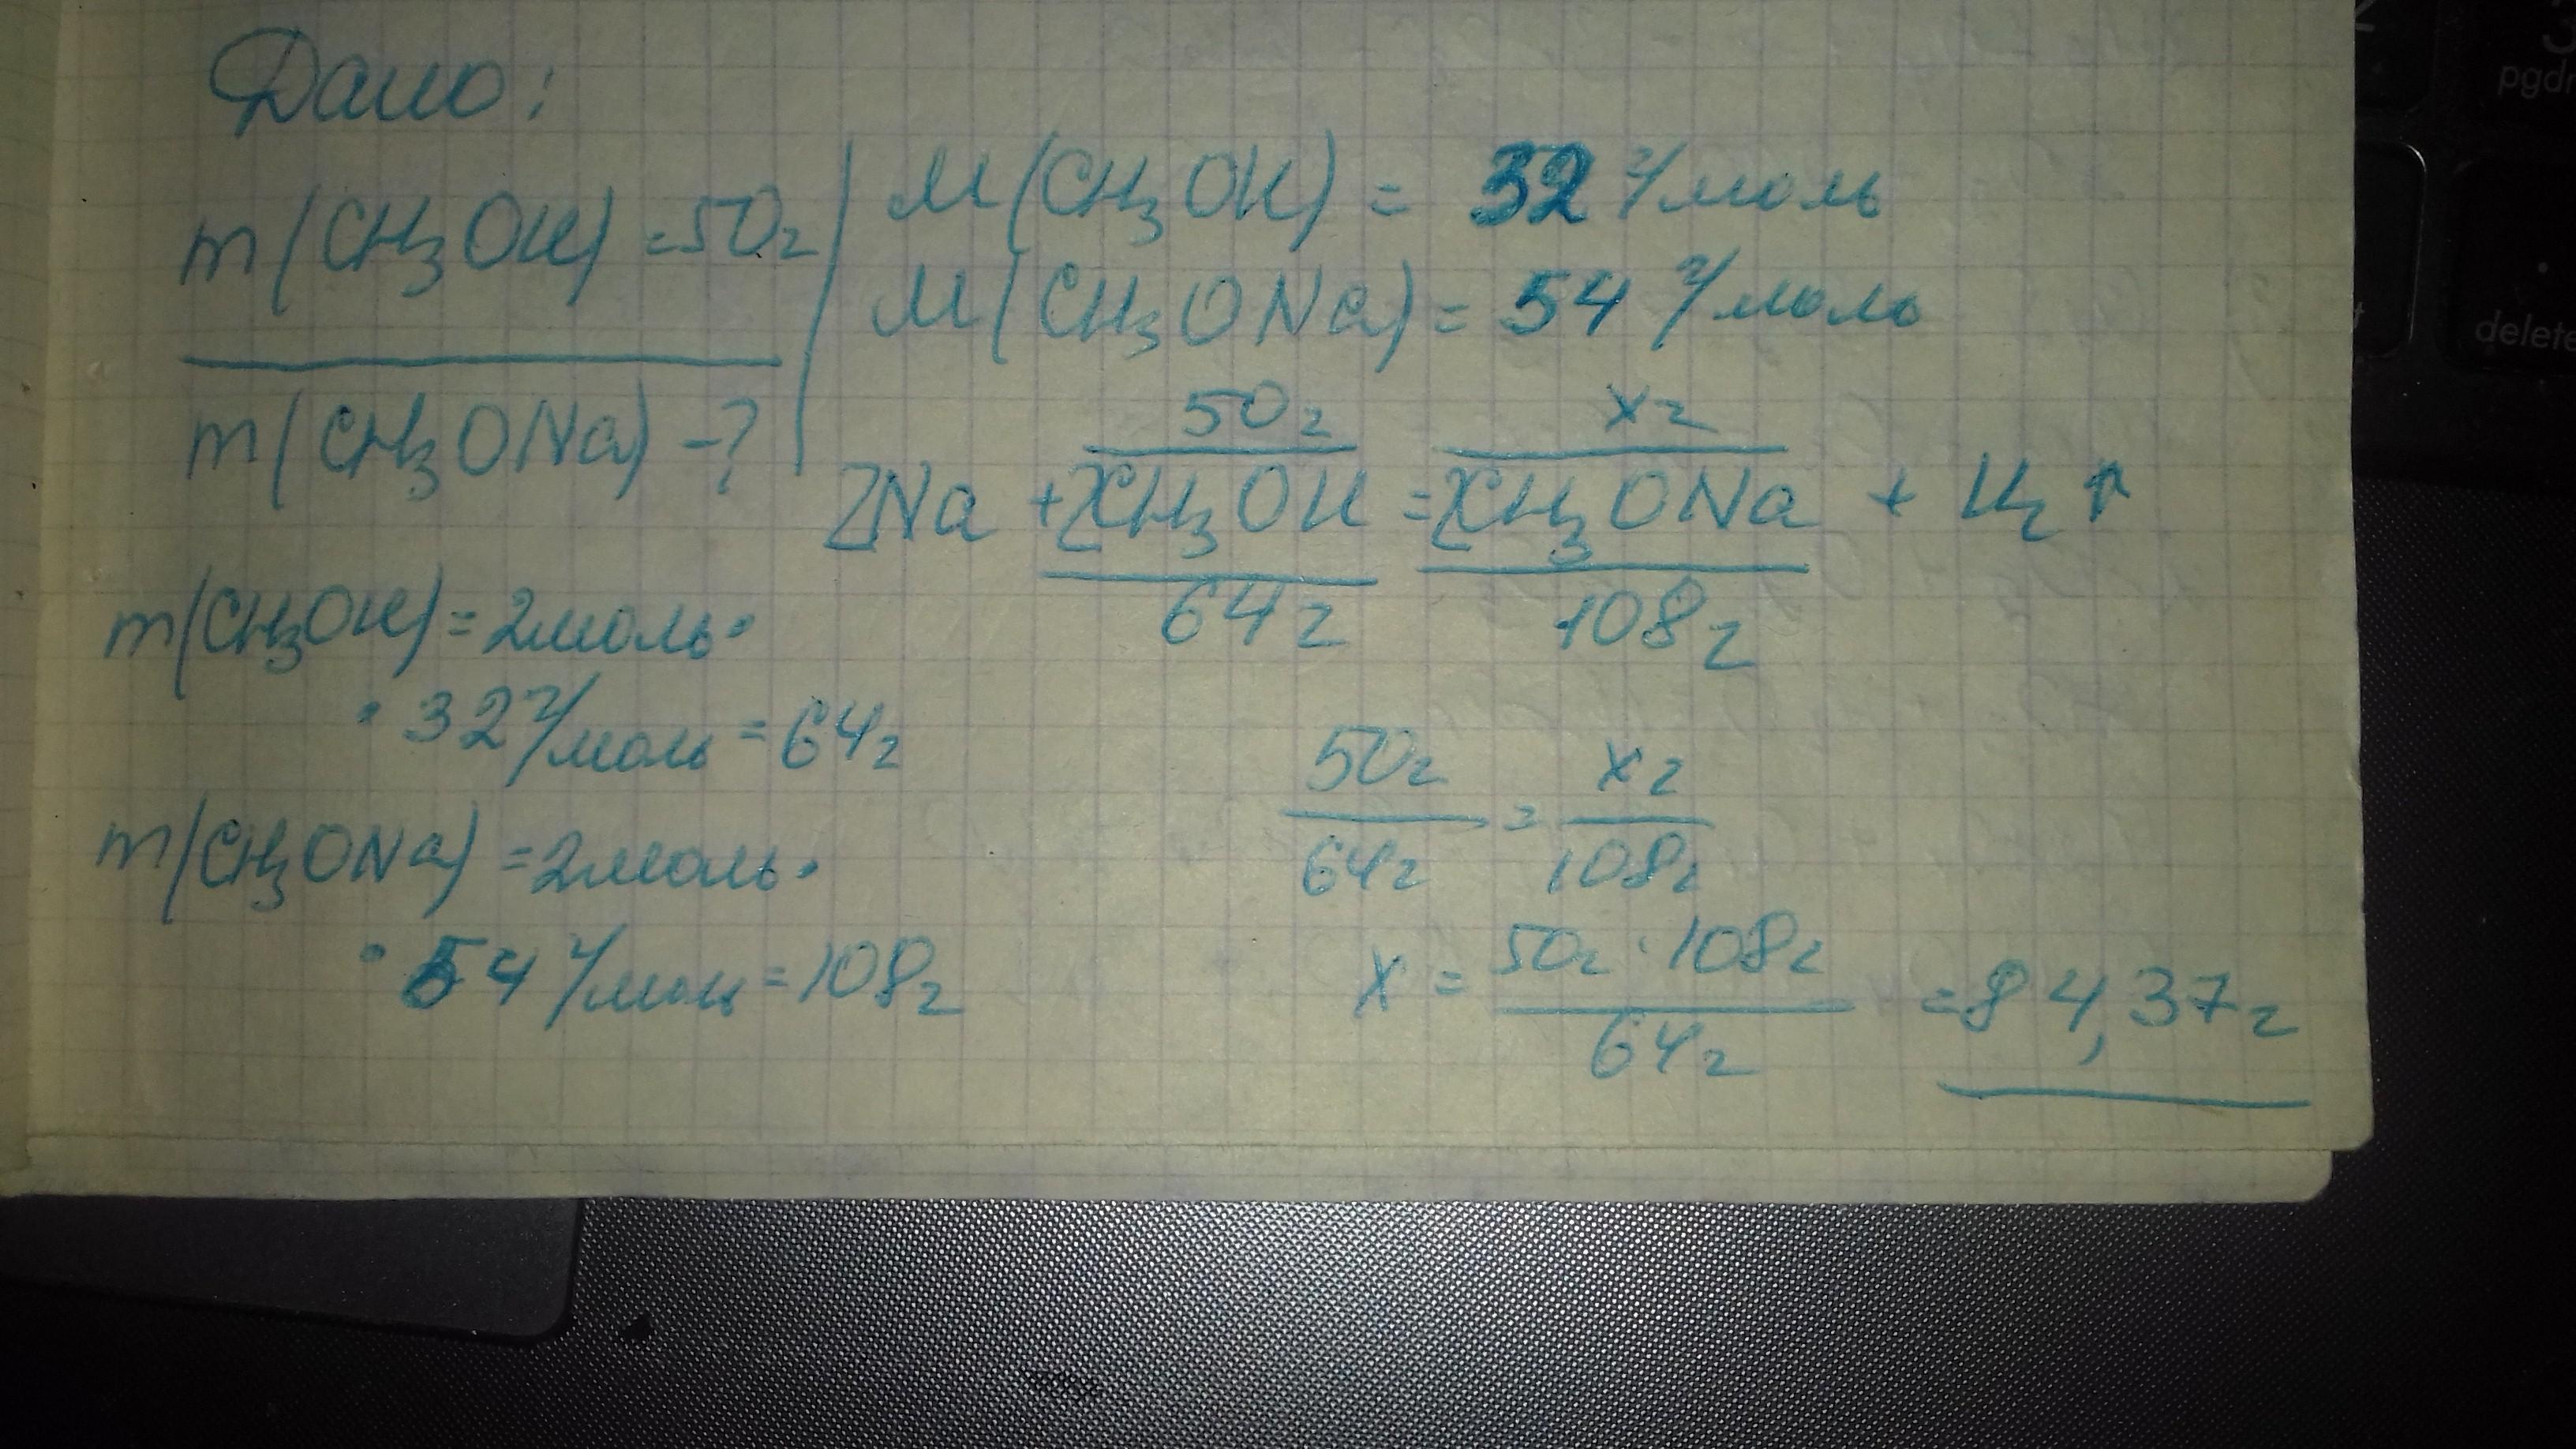 Дано:
m(CH₃OH) = 50г
m(CH₃ONa) - ?
M(CH₃OH) = 32 г/моль
M(CH₃ONa) = 54 г/моль
50г xг
2Na + 2CH₃OH = 2CH₃ONa + H₂↑
64г 108г
m(CH₃OH) = 2моль·
· 32 г/моль = 64г
m(CH₃ONa) = 2моль·
· 54 г/моль = 108г
50г/64г = xг/108г
x = 50г · 108г / 64г = 84,37г
pgdn
delete